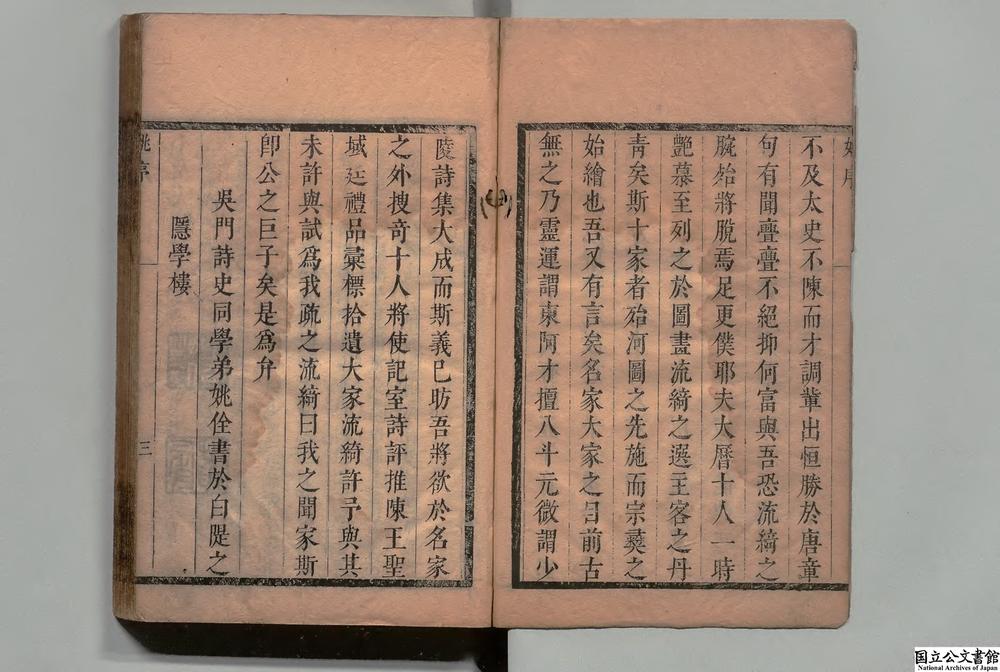 不及太史不陳而才調輩出恒勝於唐章
句有聞亹亹不絕抑何富與吾恐流綺之
腕殆將脫焉足更僕耶夫大曆十人一時
艷慕至列之於圖畫流綺之選主客之丹
青矣斯十家者殆河圖之先施而宗彝之
始繪也吾又有言矣名家大家之目前古
無之乃靈運謂東阿才擅八斗元微謂少
陵詩集大成而斯義已昉吾將欲於名家
之外搜奇十人將使記室詩評推陳王聖
域廷禮品彙標拾遺大家流綺許予與其
未許與試為我疏之流綺曰我之聞家斯
卽公之巨子矣是為弁
吳門詩史同學弟姚佺書於白隄之
隱學樓
姚序
三
国立公文書館
National Archives of Japan